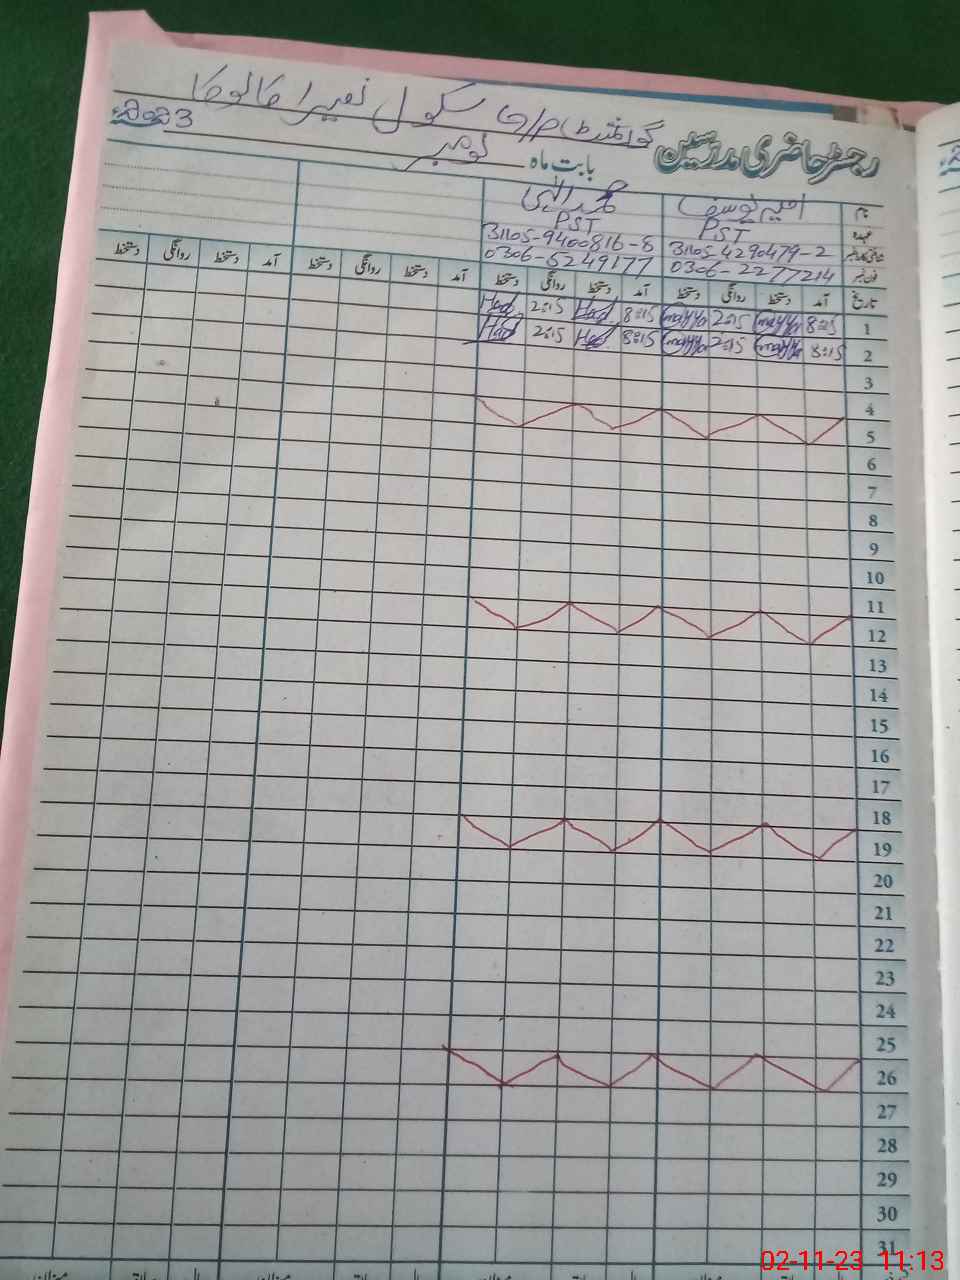 گورنمنٹ G/P سکول نصیرا کالوکا
رجسٹر حاضری مدرسین بابت ماہ نومبر 2023ء
نام یوسف الہی
عہدہ PST PST
شناختی کارڈ نمبر 31105-4290479-2 31105-9400816-8
فون نمبر 0306-2277214 0306-5249177
تاریخ آمد دستخط روانگی دستخط آمد دستخط روانگی دستخط آمد دستخط روانگی دستخط آمد دستخط روانگی دستخط
1 8:15 2:15 8:15 2:15
2 8:15 2:15 8:15 2:15
3
4
5
6
7
8
9
10
11
12
13
14
15
16
17
18
19
20
21
22
23
24
25
26
27
28
29
30
31
02-11-23 11:13